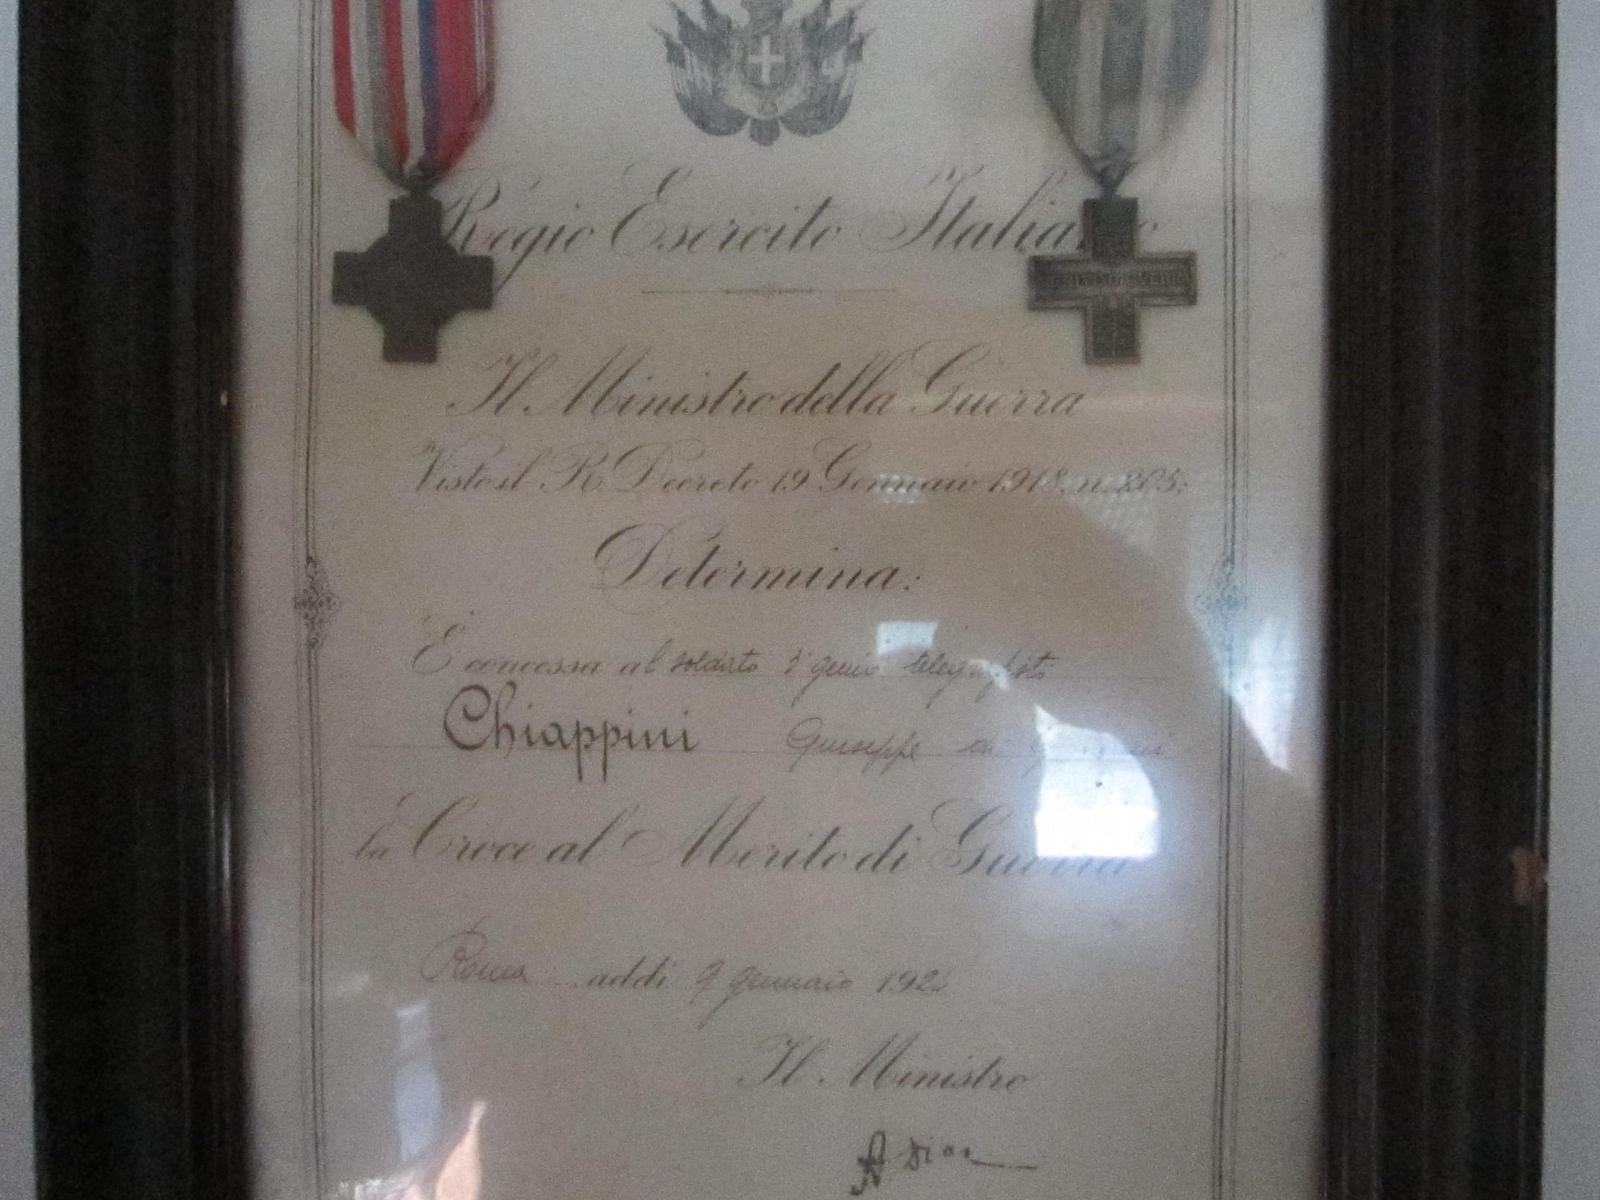 Regio Esercito Italiano
Il Ministro della Guerra
Visto il R. Decreto 19 Gennaio 1918, n. 205;
Determina:
È concessa al soldato 3° genio telegrafisti
Chiappini Giuseppe di
la Croce al Merito di Guerra
Roma addi 9 gennaio 192
Il Ministro
A Diaz